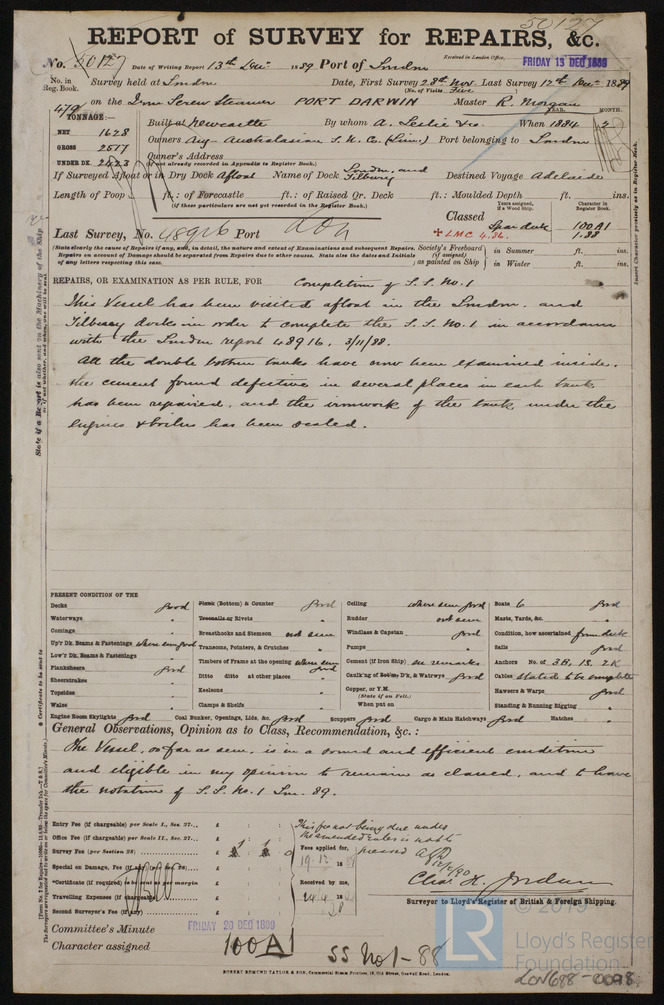 50127
REPORT of SURVEY for REPAIRS, &c.
Received in London Office,
FRIDAY 13 DEC 1889
No. 50127 Date of Writing Report 13th Dec. 1889 Port of London
No. in Reg. Book. Survey held at London Date, First Survey 28th Nov. Last Survey 12th Dec. 1889
(No. of Visits Five)
479 on the Iron Screw Steamer PORT DARWIN Master R. Morgan
TONNAGE:—
YEAR. MONTH.
NET 1628 Built at Newcastle By whom A. Leslie & Co When 1884 2
GROSS 2517 Owners Anglo-Australasian S. N. Co. (Lim.) Port belonging to London
UNDER DK. 2423 Owner's Address
(if not already recorded in Appendix to Register Book.)
If Surveyed Afloat or in Dry Dock Afloat Name of Dock London and Tilbury Destined Voyage Adelaide
Length of Poop ft.: of Forecastle ft.: of Raised Qr. Deck ft.: Moulded Depth ft. ins.
(if these particulars are not yet recorded in the Register Book.)
Years assigned, if a Wood Ship. Character in Register Book.
Classed Spar deck 100A1
Last Survey, No. 48916 Port Lon
LMC 4.86. 1.88
(State clearly the cause of Repairs if any, and, in detail, the nature and extent of Examinations and subsequent Repairs. Repairs on account of Damage should be separated from Repairs due to other causes. State also the dates and Initials of any letters respecting this case.
Society's Freeboard (if assigned) as painted on Ship in Summer ft. ins.
in Winter ft. ins.
REPAIRS, OR EXAMINATION AS PER RULE, FOR Completion of S.S. No. 1
This Vessel has been visited afloat in the London and
Tilbury docks in order to complete the S.S. No. 1 in accordance
with the London report 48916. 3/11/88.
All the double bottom tanks have now been examined inside.
the cement found defective in several places in each tank
has been repaired, and the ironwork of the tank under the
Engines & boilers has been scaled.
PRESENT CONDITION OF THE
Decks good Plank (Bottom) & Counter good Ceiling where seen good Boats 6 good
Waterways " Treenails or Rivets " Rudder not seen Masts, Yards, &c. "
Comings " Breasthooks and Stemson not seen Windlass & Capstan good Condition, how ascertained from deck
Up'r Dk. Beams & Fastenings where seen good Transoms, Pointers, & Crutches " Pumps " Sails good
Low'r Dk. Beams & Fastenings " Timbers of Frame at the opening where seen good Cement (if Iron Ship) see remarks Anchors No. of 3B, 1S, 2K
Planksheers good Ditto ditto at other places " Caulk'ng of Bot'm, D'k, & Watrwys good Cables stated to be complete
Sheerstrakes " Keelsons " Copper, or Y.M. Hawsers & Warps good
Topsides " Clamps & Shelfs " (State if on Felt.) Standing & Running Rigging "
Wales " When put on
Engine Room Skylights good Coal Bunker, Openings, Lids, &c. good Scuppers good Cargo & Main Hatchways good Hatches "
General Observations, Opinion as to Class, Recommendation, &c.:
The Vessel, so far as seen, is in a sound and efficient condition
and eligible in my opinion to remain as classed, and to have
the notation of S.S. No. 1 Lon. 89.
Entry Fee (if chargeable) per Scale I., Sec. 27. £ : :
This fee not being due under the amended rules is not to pressed
Office Fee (if chargeable) per Scale II., Sec. 27. £ : :
Survey Fee (per Section 28) £ 1 : 1 : 0
Fees applied for,
Special or Damage Fee £ : :
19.12. 18
*Certificate (if required) to be sent as per margin £ : :
Chas. H. Jordan
Travelling Expenses (if chargeable) £ : :
Received by me,
Second Surveyor's Fee (if any) £ : :
Surveyor to Lloyd's Register of British & Foreign Shipping.
Committee's Minute FRIDAY 20 DEC 1889
Character assigned 100A1
SS No 1-88
ROBERT EDMUND TAYLOR & SON, Commercial Steam Printers, 19, Old Street, Goswell Road, London.
LR
Lloyd's Register Foundation
LON688-0098